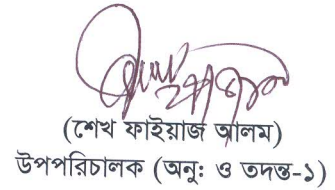 (শেখ ফাইয়াজ আলম)
উপপরিচালক (অনু: ও তদন্ত-১)